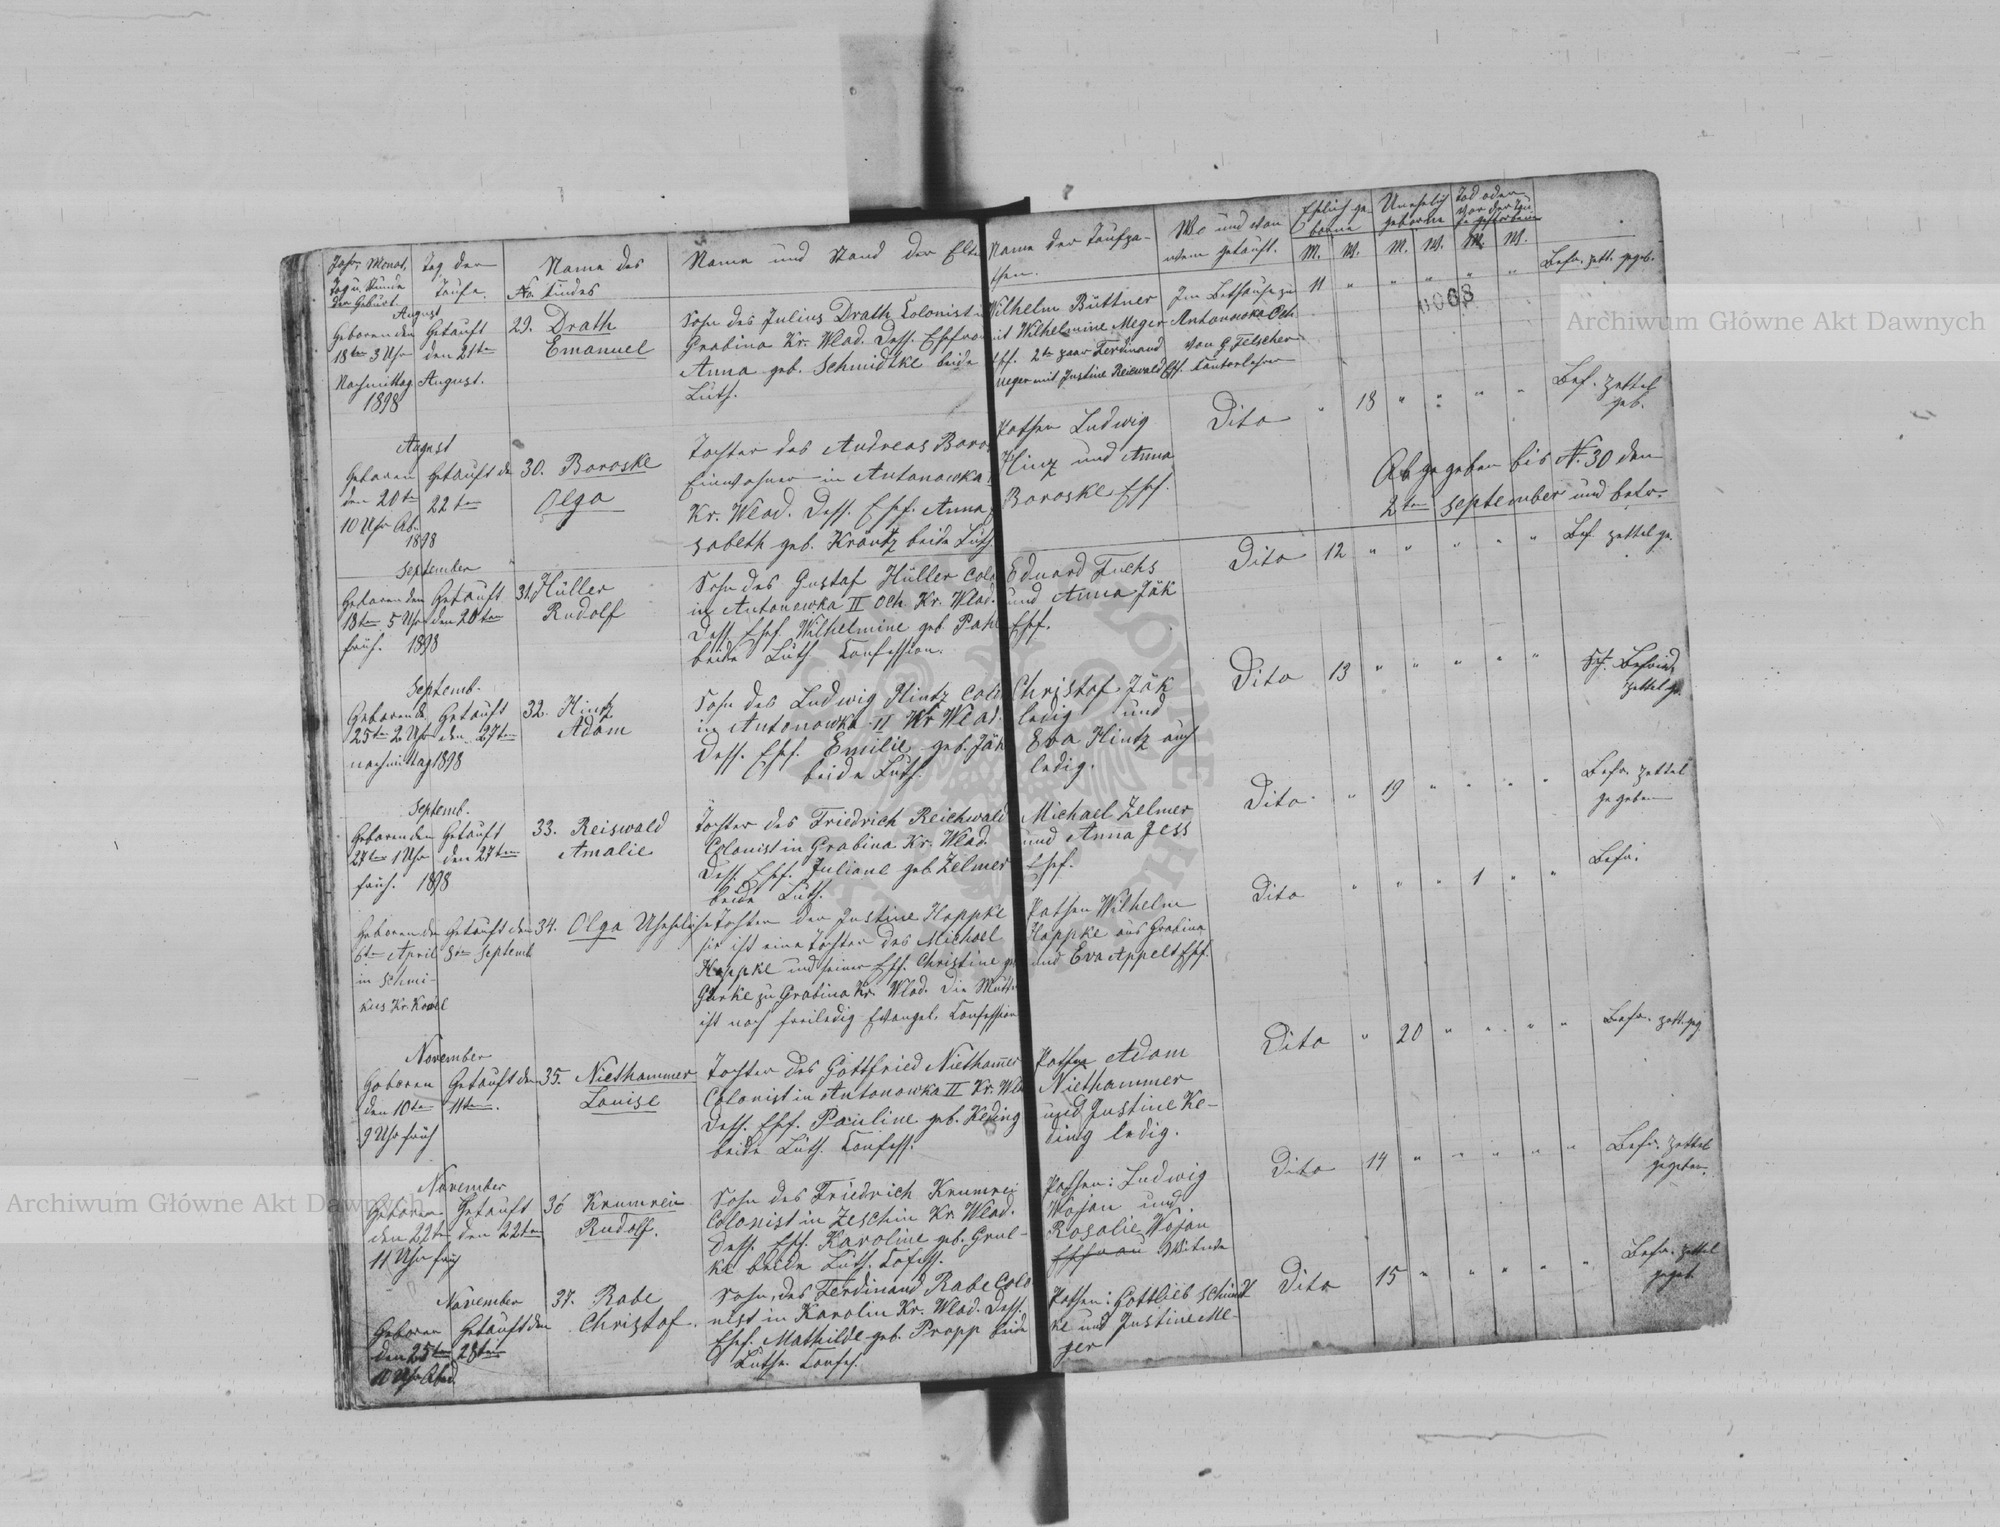 Jahr, Monat, Tag u. Stunde der Geburt.
Tag der Taufe.
No.
Name des Kindes
Name und Stand der Elte
Name der Taufpathen.
Wo und von wem getauft.
Ehelich geborne
Unehelich geborne
Tod oder vor der Taufe gestorben
M. W. M. W. M. W.
0068
August
Geboren den
18ten 3 Uhr
Nachmittag
1898
Getauft
den 21ten
August.
29. Drath
Emanuel
Sohn des Julius Drath Colonist in
Grabina Kr. Wlad. Dess. Ehefrau
Anna geb. Schmidtke beide
Luth.
Wilhelm Büttner
mit Wilhelmine Meger
Ehf. 2te paar Ferdinand
Meger mit Justine Reiswald Ehf.
Im Bethause zu
Antonowka Och
von G. Felscher
Kantorlehrer
11 " " " " "
Befr. zett. gegeb.
August
Geboren
den 20ten
10 Uhr Ab.
1898
Getauft den
22ten
30. Boroske
Olga
Tochter des Andreas Boros
Einwohner in Antonowka
Kr. Wlad. Dess. Ehf. Anna
sabeth geb. Krantz beide Luth.
Pathen Ludwig
Hinz und Anna
Boroske Ehf.
Dito
" 18 " " " "
Bef. zettel
geb.
Abgegeben bis N. 30 den
2ten September und betr.
September
Geboren den
18ten 5 Uhr
früh. 1898
Getauft
den 20ten
31. Hüller
Rudolf
Sohn des Gustaf Hüller Colo
in Antonowka II Och Kr. Wlad.
Dess. Ehef. Wilhelmine geb. Pahl
beide Luth. Confession.
Eduard Fuchs
und Anna Jäk
Ehf.
Dito
12 " " " " "
Bef. zettel ge.
Septemb.
Geboren d.
25ten 2 Uhr
nachmittag 1898
Getauft
den 27ten
32. Hintz
Adam
Sohn des Ludwig Hintz Colo
in Antonowka II Kr. Wlad.
Dess. Ehf. Emilie geb. Jäk
beide Luth.
Christof Jäk
ledig und
Eva Hintz auch
ledig.
Dito
13 " " " " "
zettel ge.
Septemb.
Geboren den
27ten 1 Uhr
früh. 1898
Getauft
den 27ten
33. Reiswald
Amalie
Tochter des Friedrich Reichwald
Colonist in Grabina Kr. Wlad.
Dess. Ehf. Juliane geb. Zelmer
beide Luth.
Michael Zelmer
und Anna Jess
Ehf.
Dito
" 19 " " " "
Befr. zettel
gegeben
Geboren den
6ten April
in Schmi-
kus Kr. Kowel
Getauft den
3ten Septemb
34. Olga Uneheliche
Tochter der Justine Hoppke
sie ist eine Tochter des Michael
Hoppke und seiner Ehf. Christine ge
Gärke zu Grabina Kr. Wlad. Die Mutter
ist noch freiledig Evangel. Confession
Pathen Wilhelm
Hoppke aus Grabina
und Eva Appelt Ehf.
Dito
" " " 1 " "
Befr.
November
Geboren
den 10ten
9 Uhr früh
Getauft den
11ten.
35. Niethammer
Louise
Tochter des Gottfried Niethammer
Colonist in Antonowka II Kr. Wla
Dess. Ehf. Pauline geb. Keding
beide Luth. Confess.
Pathen Adam
Niethammer
und Justine Ke-
ding ledig.
Dito
" 20 " " " "
Befr. zett. geg
November
Geboren
den 22ten
11 Uhr früh
Getauft
den 22ten
36 Krumrein
Rudolf.
Sohn des Friedrich Krumrei
Colonist in Zeschin Kr. Wlad.
Dess. Ehf. Karoline geb. Grul-
ke beide Luth. Cofess.
Pathen: Ludwig
Wojan und
Rosalie Wojan
Ehfrau Witwe
Dito
14 " " " " "
Befr. zettel
gegeben.
November
Geboren
den 25ten
11 Uhr Abed.
Getauft den
28ten
37. Rabe
Christof.
Sohn des Ferdinand Rabe Colo
nist in Karolin Kr. Wlad. Dess.
Ehf. Mathilde geb. Propp beide
Luthr. Confes.
Pathen: Gottlieb Schmidt
ke und Justine Me-
ger
Dito
15 " " " " "
Befr. zettel
gegeb.
Archiwum Główne Akt Dawnych
Archiwum Główne Akt Dawnych